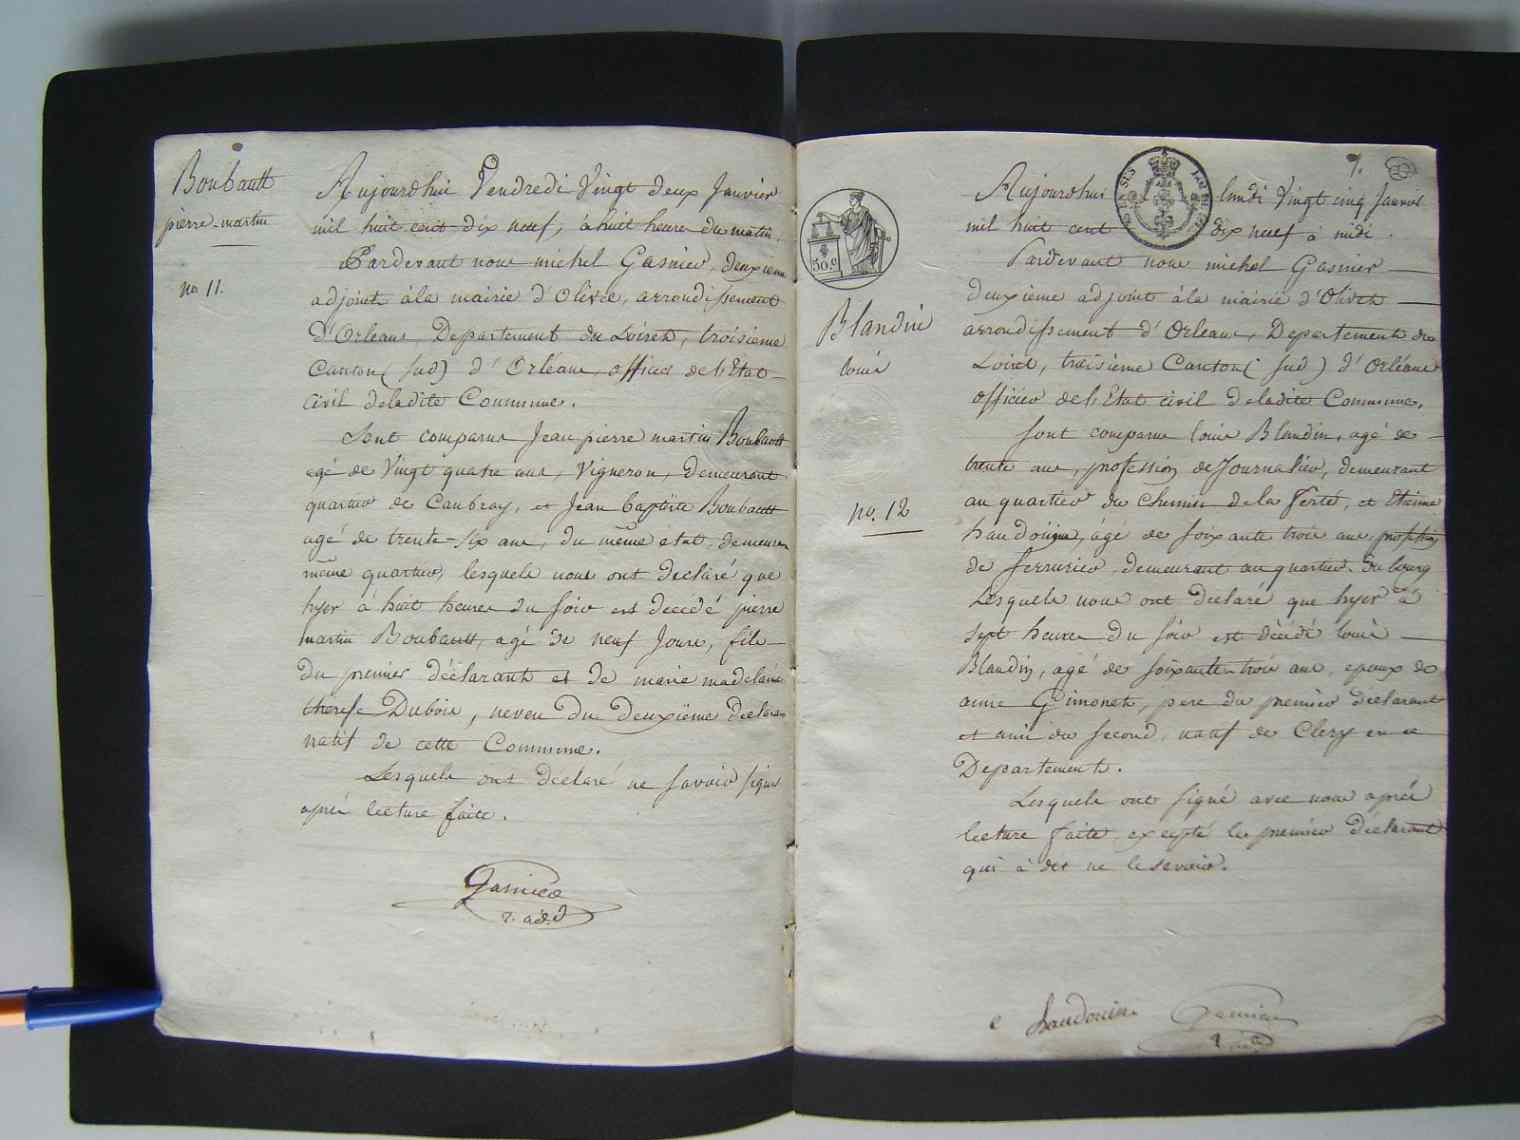 Boubault
pierre-martin
no 11.
Aujourdhui Vendredi Vingt deux Janvier
mil huit cent dix neuf, à huit heures du matin.
Pardevant nous michel Gasnier, deuxieme
adjoint à la mairie d'Olivet, arrondissement
d'Orleans, Departement du Loiret, troisieme
Canton (sud) d'Orléans, officier de l'Etat
Civil de la dite Commune.
Sont comparus Jean pierre martin Boubault
agé de Vingt quatre ans, Vigneron, demeurant
quartier de Caubray, et Jean baptiste Boubault
agé de trente-six ans, du même état, demeurant
même quartier, lesquels nous ont declaré que
hyer à huit heures du soir est décédé pierre
martin Boubault, agé de neuf Jours, fils
du premier déclarant et de marie madelaine
therese Dubois, neveu du deuxième declarant
natif de cette Commune.
Lesquels ont déclaré ne savoir signer
après lecture faite.
Gasnier
2. adj.
7.
50 c
Blandin
louis
no. 12
Aujourdhui lundi Vingt cinq Janvier
mil huit cent dix neuf à midi.
Pardevant nous michel Gasnier
deuxieme adjoint à la mairie d'Olivet
arrondissement d'Orleans, Departement du
Loiret, troisième Canton (sud) d'Orléans
officier de l'Etat civil de la dite Commune.
Sont comparus louis Blandin, agé de
trente ans, profession de Journalier, demeurant
au quartier du chemin de la ferté, et Etienne
haudouin, agé de soixante trois ans, profession
de serrurier demeurant au quartier du bourg
Lesquels nous ont declaré que hyer à
sept heures du soir est décédé louis
Blandin, agé de soixante trois ans, epoux de
anne Gimonet, pere du premier declarant
et ami du second, natif de Clery en ce
Departement.
Lesquels ont signé avec nous après
lecture faite excepté le premier déclarant
qui à dit ne le savoir.
e haudouin Gasnier
2. adj